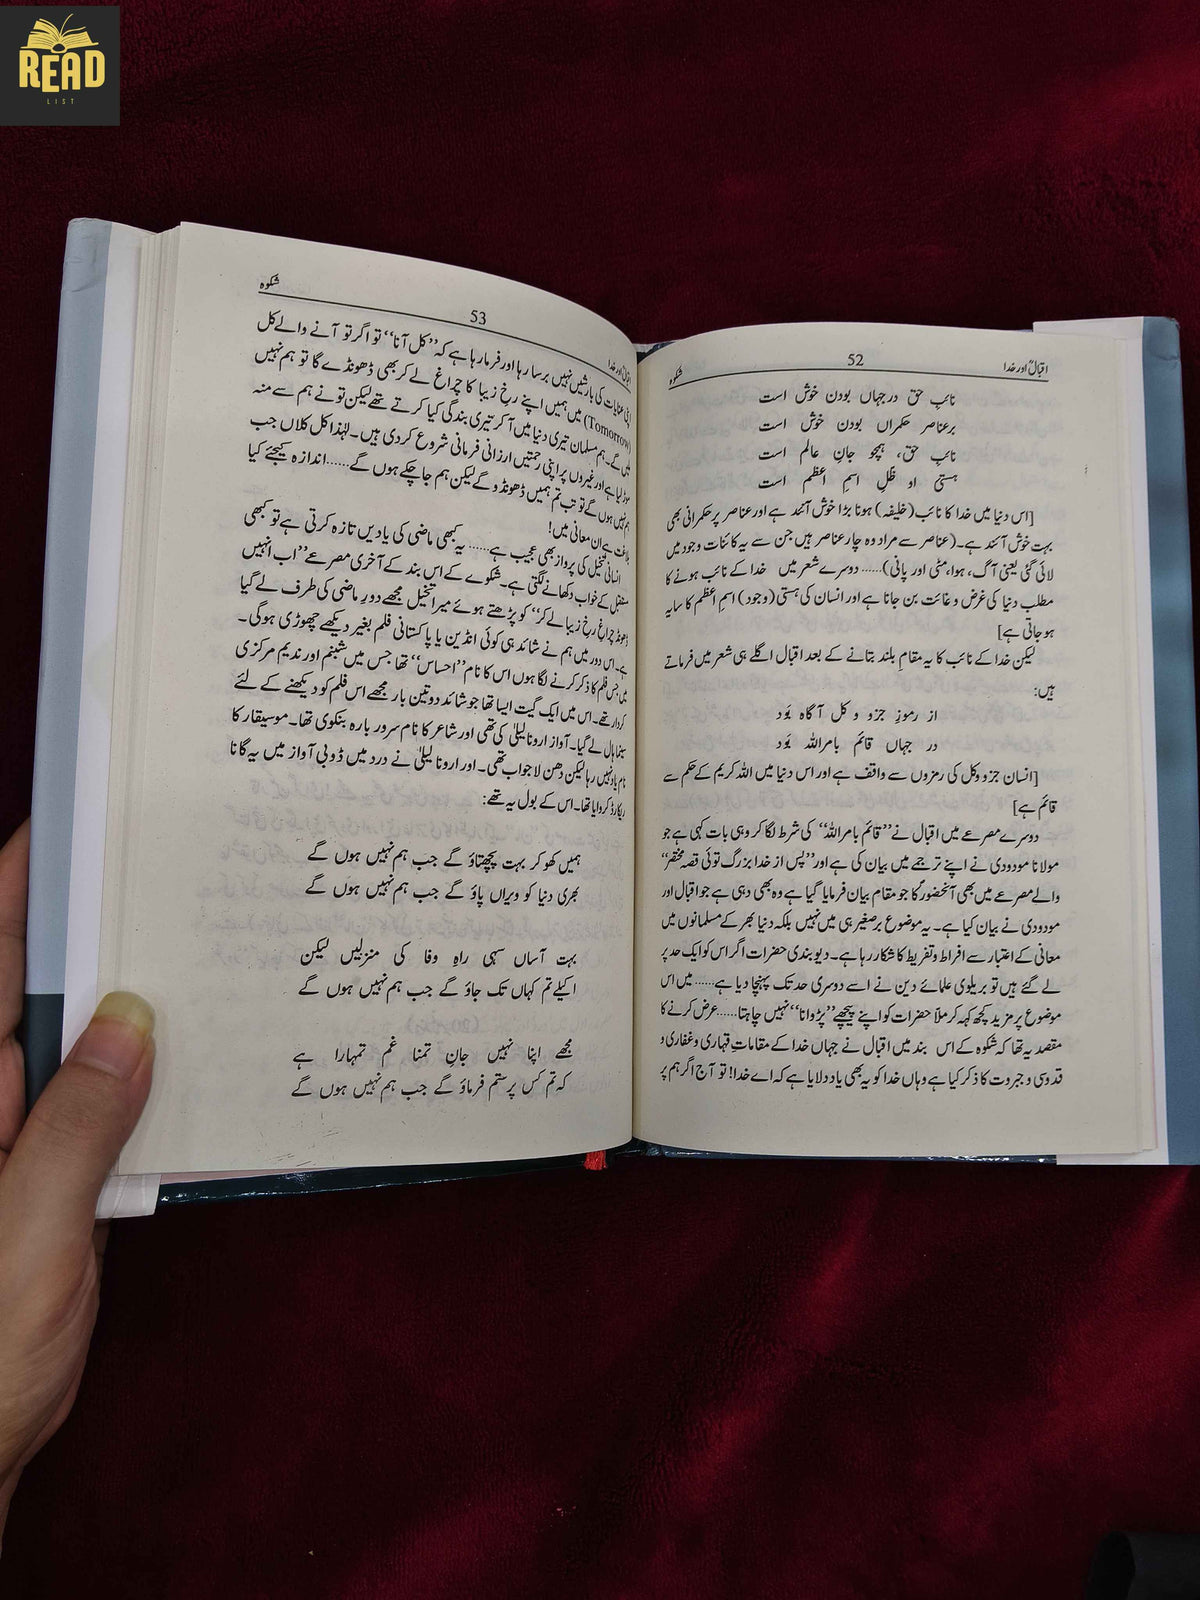 READ
LIST
اقبالؒ اور خدا 52 شکوہ
نائبِ حق در جہاں بودن خوش است
بر عناصر حکمراں بودن خوش است
نائبِ حق، ہمچو جانِ عالم است
ہستیِ او ظلِ اسمِ اعظم است
[اس دنیا میں خدا کا نائب (خلیفہ) ہونا بڑا خوش آئند ہے اور عناصر پر حکمرانی بھی
بہت خوش آئند ہے۔ (عناصر سے مراد وہ چار عناصر ہیں جن سے یہ کائنات وجود میں
لائی گئی یعنی آگ، ہوا، مٹی اور پانی)...... دوسرے شعر میں خدا کے نائب ہونے کا
مطلب دنیا کی غرض و غائت بن جانا ہے اور انسان کی ہستی (وجود) اسمِ اعظم کا سایہ
ہو جاتی ہے]
لیکن خدا کے نائب کا یہ مقامِ بلند بتانے کے بعد اقبال اگلے ہی شعر میں فرماتے
ہیں:
از رموزِ جزو و کل آگاہ بَود
در جہاں قائم بامر اللہ بَود
[انسان جزو و کل کی رمزوں سے واقف ہے اور اس دنیا میں اللہ کریم کے حکم سے
قائم ہے]
دوسرے مصرعے میں اقبال نے ”قائم بامر اللہ“ کی شرط لگا کر وہی بات کہی ہے جو
مولانا مودودی نے اپنے ترجمے میں بیان کی ہے اور ”پس از خدا بزرگ توئی قصہ مختصر“
والے مصرعے میں بھی آنحضورؐ کا جو مقام بیان فرمایا گیا ہے وہ بھی وہی ہے جو اقبال اور
مودودی نے بیان کیا ہے۔ یہ موضوع برصغیر ہی میں نہیں بلکہ دنیا بھر کے مسلمانوں میں
معانی کے اعتبار سے افراط و تفریط کا شکار رہا ہے۔ دیوبندی حضرات اگر اس کو ایک حد پر
لے گئے ہیں تو بریلوی علمائے دین نے اسے دوسری حد تک پہنچا دیا ہے...... میں اس
موضوع پر مزید کچھ کہہ کر ملّا حضرات کو اپنے پیچھے ”پڑوانا“ نہیں چاہتا...... عرض کرنے کا
مقصد یہ تھا کہ شکوہ کے اس بند میں اقبال نے جہاں خدا کے مقاماتِ قہاری و غفاری و
قدوسی و جبروت کا ذکر کیا ہے وہاں خدا کو یہ بھی یاد دلایا ہے کہ اے خدا! تو آج اگر ہم پر
اقبالؒ اور خدا 53 شکوہ
اپنی عنایات کی بارشیں نہیں برسا رہا اور فرما رہا ہے کہ ”کل آنا“ تو اگر تو آنے والے کل
(Tomorrow) میں ہمیں اپنے رخِ زیبا کا چراغ لے کر بھی ڈھونڈے گا تو ہم نہیں
ملیں گے۔ ہم مسلمان تیری دنیا میں آ کر تیری بندگی کیا کرتے تھے لیکن تو نے ہم سے منہ
موڑ لیا ہے اور غیروں پر اپنی رحمتیں ارزانی فرمانی شروع کر دی ہیں۔ لہٰذا کل کلاں جب
ہم نہیں ہوں گے تو تب تم ہمیں ڈھونڈو گے لیکن ہم جا چکے ہوں گے...... اندازہ کیجئے کیا
بلاغت ہے ان معانی میں!
انسانی تخیل کی پرواز بھی عجیب ہے...... یہ کبھی ماضی کی یادیں تازہ کرتی ہے تو کبھی
مستقبل کے خواب دکھانے لگتی ہے۔ شکوے کے اس بند کے آخری مصرعے ”اب انہیں
ڈھونڈ چراغِ رخِ زیبا لے کر“ کو پڑھتے ہوئے میرا تخیل مجھے دورِ ماضی کی طرف لے گیا
ہے۔ اس دور میں ہم نے شائد ہی کوئی انڈین یا پاکستانی فلم بغیر دیکھے چھوڑی ہوگی۔
میں جس فلم کا ذکر کرنے لگا ہوں اس کا نام ”احساس“ تھا جس میں شبنم اور ندیم مرکزی
کردار تھے۔ اس میں ایک گیت ایسا تھا جو شائد دو تین بار مجھے اس فلم کو دیکھنے کے لئے
سینما ہال لے گیا۔ آواز ارونا لیلیٰ کی تھی اور شاعر کا نام سرور بارہ بنکوی تھا۔ موسیقار کا
نام یاد نہیں رہا لیکن دھن لاجواب تھی۔ اور ارونا لیلیٰ نے درد میں ڈوبی آواز میں یہ گانا
ریکارڈ کروایا تھا۔ اس کے بول یہ تھے:
ہمیں کھو کر بہت پچھتاؤ گے جب ہم نہیں ہوں گے
بھری دنیا کو ویراں پاؤ گے جب ہم نہیں ہوں گے
بہت آساں سہی راہِ وفا کی منزلیں لیکن
اکیلے تم کہاں تک جاؤ گے جب ہم نہیں ہوں گے
مجھے اپنا نہیں جانِ تمنا غم تمہارا ہے
کہ تم کس پر ستم فرماؤ گے جب ہم نہیں ہوں گے